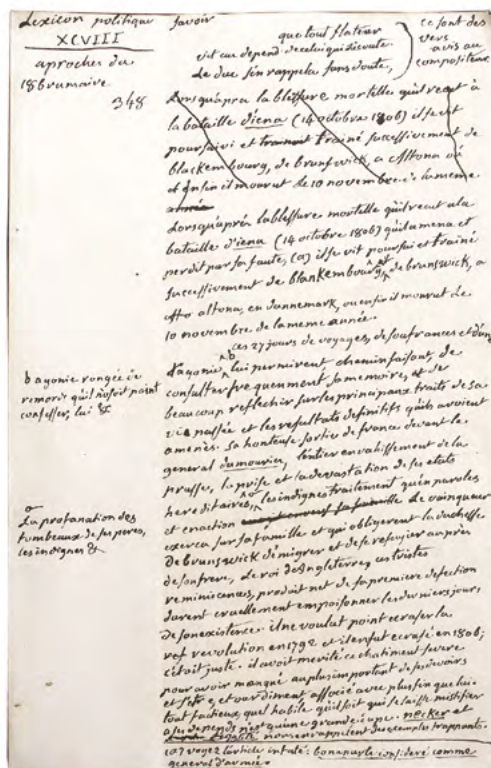 Lexicon politique
XCVIII
aproches du
18 brumaire
348
Savoir
que tout flateur
vit aux depend de celui qui l'ecoute.
Le duc s'en rappela sans doute,
ce sont des
vers
avis au
compositeur
Lorsqu'apra la blessure mortelles qu'il recut à
la bataille d'iena (14 octobre 1806) il se vit
poursuivi et trainant trainé successivement de
blackembourg, de brunswick, a Altona où
et enfin il mourut le 10 novembre de la meme
année
Lorsqu'après la blessure mortelle qu'il recut a la
bataille d'iena (14 octobre 1806) qu'il amena et
perdit par sa faute, (a) il se vit poursui et trainé
successivement de blankembourg, et de brunswick, a
altona, en dannemark, ou enfin il mourut le
10 novembre de la meme année.
Ces 27 jours de voyages, de soufrances et d'une
d'agonie, b lui permirent chemin faisant, de
consulter frequemment sa memoire, et de
beaucoup reflechir sur les principaux traits de sa
vie passée et les resultats definitifs qu'ils avoient
amenés. Sa honteuse sortie de france devant le
general dumourier, l'entier envahissement de la
prusse, la prise et la devastation de ses etats
hereditaires, les indignes traitement qu'en paroles
et en action le vainqueur
exerca sur sa famille et qui obligerent la duchesse
de brunswick d'emigrer et de se refugier auprès
de son frere, le roi d'Angleterre, ces tristes
reminicences, produit net de sa premiere defection
durent cruellement empoisonner les derniers jours
de son existence. il ne voulut point ecraser la
revolution en 1792 et il en fut ecrasé en 1806;
c'étoit juste. il avoit merité ce chatiment severe
pour avoir manqué au plus important de ses devoirs
et s'etre associé avec plus fin que lui:
tout factieux, quel habile qu'il soit qui se laisse mistifier
a ses depends n'est qu'une grande dupe. necker et
nous en rappelent des exemples frappants.
(a) voyez l'article intitulé: bonaparte consideré comme
general d'armée.
b agonie rongée de
remords qu'il n'osoit point
confesser, lui &
La profanation des
tombeaux de ses peres,
les indignes &